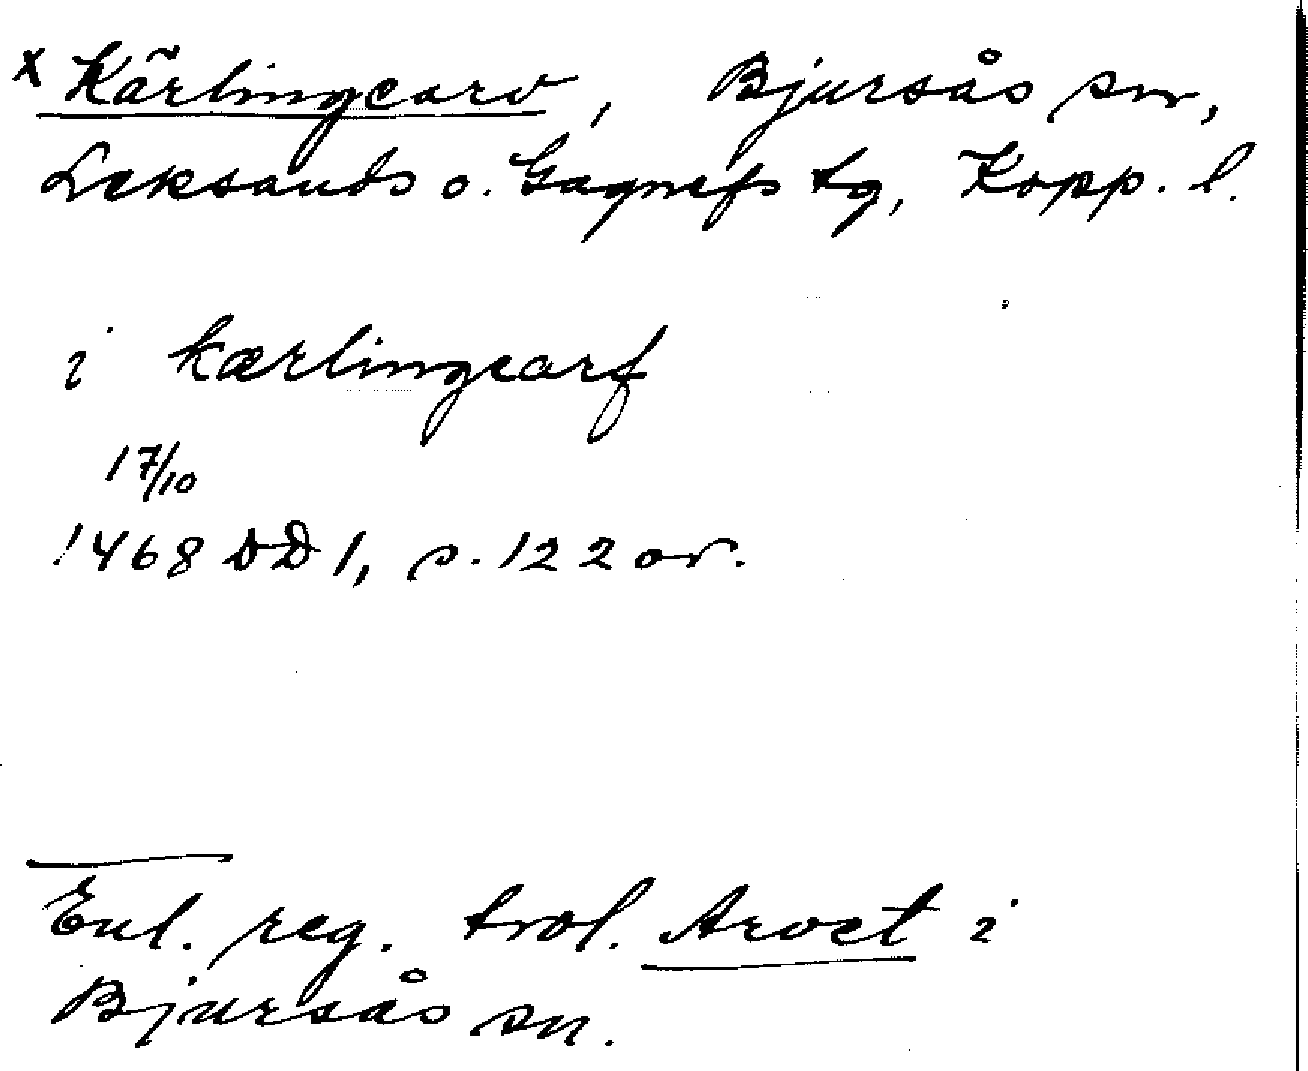 x Kärlingearv, Bjursås sn,
Leksands o. Gagnefs tg, Kopp. l.
i kærlingearf
17/10
1468 DD 1, s. 122 or.
Enl. reg. trol. Arvet i
Bjursås sn.